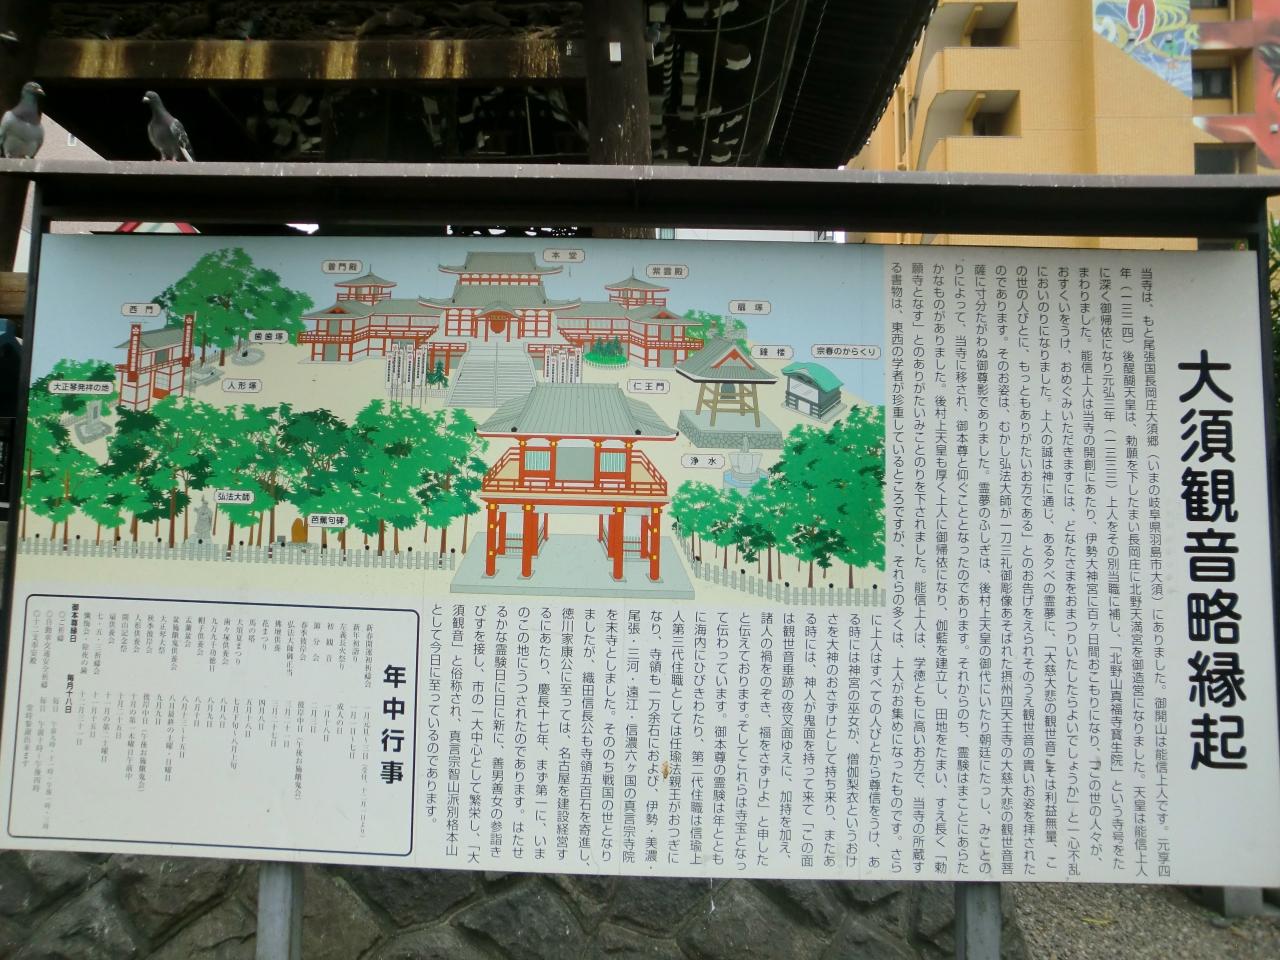 大須観音略縁起
当寺は、もと尾張国長岡庄大須郷（いまの岐阜県羽島市大須）にありました。御開山は能信上人です。元享四
年（一三二四）後醍醐天皇は、勅願を下したまい長岡庄に北野天満宮を御造営になりました。天皇は能信上人
に深く御帰依になり元弘三年（一三三三）上人をその別当職に補し、「北野山真福寺寶生院」という寺号をた
まわりました。能信上人は当寺の開創にあたり、伊勢大神宮に百ヶ日間おこもりになり、「この世の人々が、
おすくいをうけ、おめぐみいただきますには、どなたさまをおまつりいたしたらよいでしょうか」と一心不乱
においのりになりました。上人の誠は神に通じ、ある夕べの霊夢に、「大慈大悲の観世音こそは利益無量、こ
の世の人びとに、もっともありがたいお方である」とのお告げをえられそのうえ観世音の貴いお姿を拝された
のであります。そのお姿は、むかし弘法大師が一刀三礼御彫像あそばされた摂州四天王寺の大慈大悲の観世音菩
薩に寸分たがわぬ御尊影でありました。霊夢のふしぎは、後村上天皇の御代にいたり朝廷にたっし、みことの
りによって、当寺に移され、御本尊と仰ぐこととなったのであります。それからのち、霊験はまことにあらた
かなものがありました。後村上天皇も厚く上人に御帰依になり、伽藍を建立し、田地をたまい、すえ長く「勅
願寺となす」とのありがたいみことのりを下されました。能信上人は、学徳ともに高いお方で、当寺の所蔵す
る書物は、東西の学者が珍重しているところですが、それらの多くは、上人がお集めになったものです。さら
に上人はすべての人びとから尊信をうけ、あ
る時には神宮の巫女が、僧伽梨衣というおけ
さを大神のおさずけとして持ち来り、またあ
る時には、神人が鬼面を持って来て「この面
は観世音垂跡の夜叉面ゆえに、加持を加え、
諸人の禍をのぞき、福をさずけよ」と申した
と伝えております。そしてこれらは寺宝となっ
て伝わっています。御本尊の霊験は年ととも
に海内にひびきわたり、第二代住職は信瑜上
人第三代住職としては任瑜法親王がおつぎに
なり、寺領も一万余石におよび、伊勢・美濃・
尾張・三河・遠江・信濃六ヶ国の真言宗寺院
を末寺としました。そののち戦国の世となり
ましたが、織田信長公も寺領五百石を寄進し、
徳川家康公に至っては、名古屋を建設経営す
るにあたり、慶長十七年、まず第一に、いま
のこの地にうつされたのであります。はたせ
るかな霊験日に日に新に、善男善女の参詣き
びすを接し、市の一大中心として繁栄し、「大
須観音」と俗称され、真言宗智山派別格本山
として今日に至っているのであります。
本堂
普門殿
紫雲殿
西門
扇塚
歯歯塚
鐘楼
宗春のからくり
大正琴発祥の地
人形塚
仁王門
浄水
弘法大師
芭蕉句碑
年中行事
新年初語り　一月一日～七日
左義長火祭り　成人の日
初観音　一月十八日
節分会　二月三日
春季彼岸会　彼岸中日（午後お施餓鬼会）
弘法大師御正当　三月二十一日
花まつり　四月八日
御本尊縁日　毎月十八日